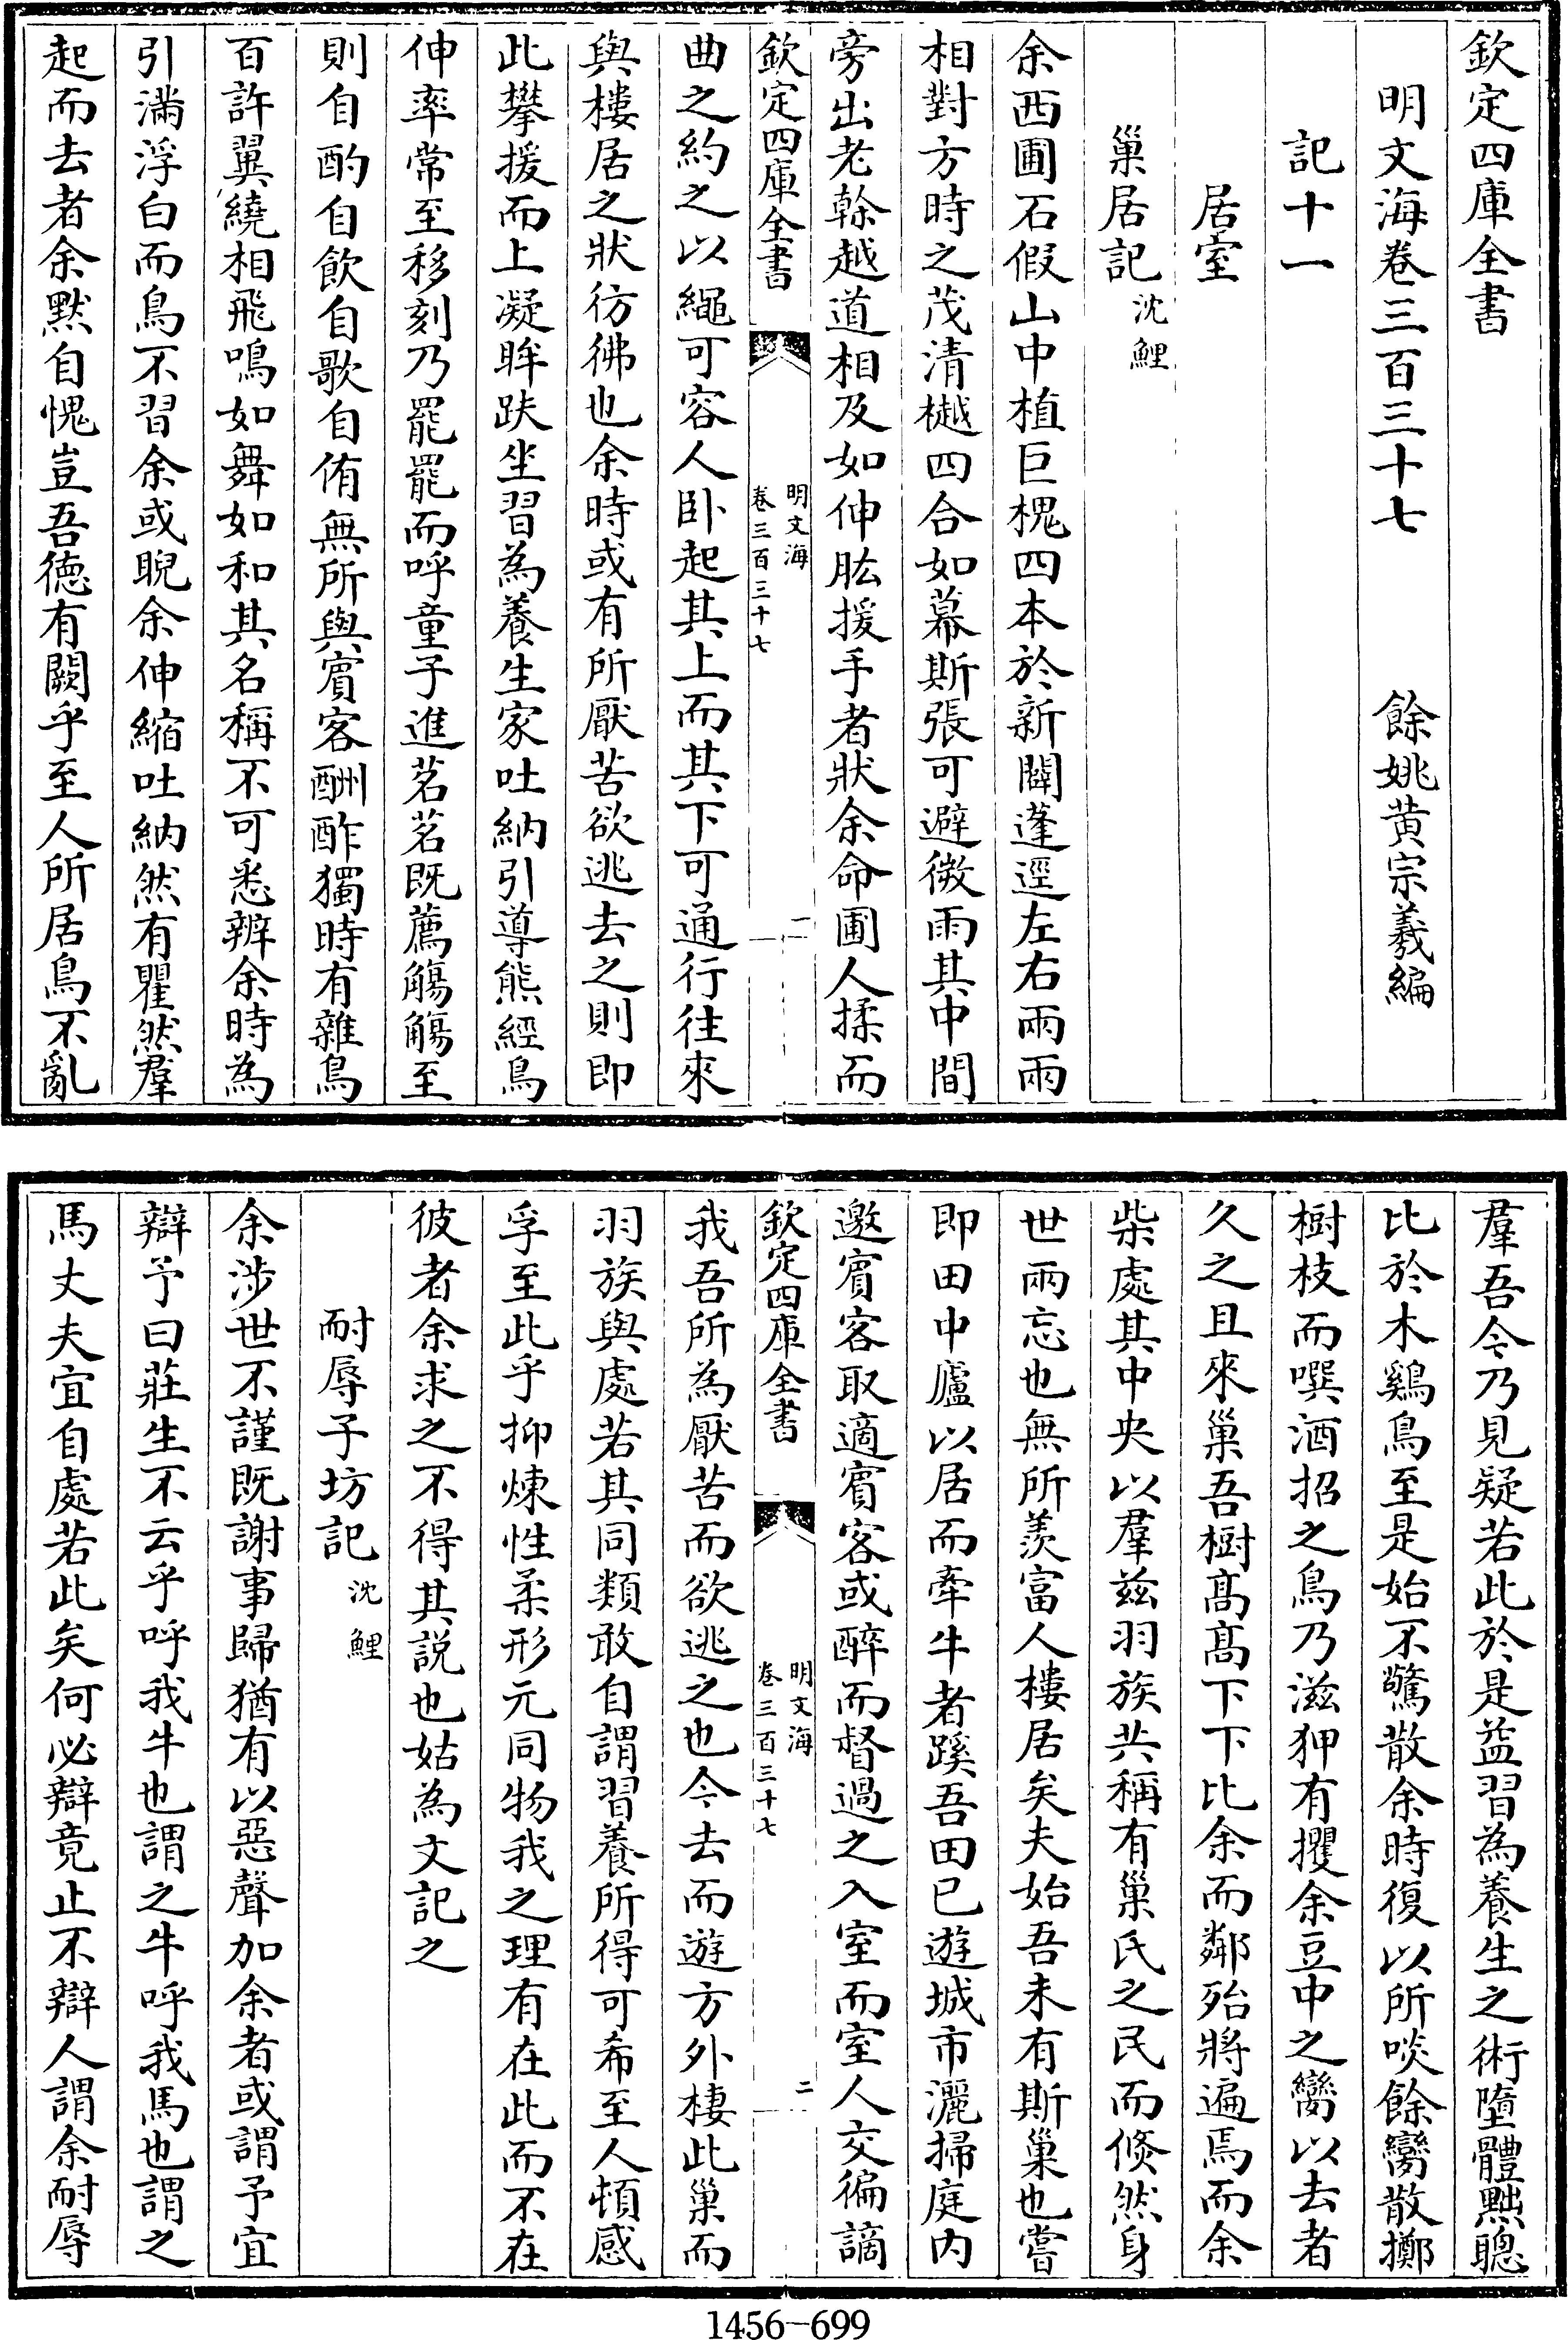 欽定四庫全書
明文海卷三百三十七 餘姚黄宗羲編
記十一
居室
巢居記沈鯉
余西圃石假山中植巨槐四本於新闢蓬逕左右兩兩
相對方時之茂清樾四合如幕斯張可避微雨其中間
旁出老榦越道相及如伸肱援手者狀余命圃人揉而
欽定四庫全書
明文海
卷三百三十七
一
曲之約之以繩可容人卧起其上而其下可通行往來
與樓居之狀彷彿也余時或有所厭苦欲逃去之則即
此攀援而上凝眸趺坐習為養生家吐納引導熊經鳥
伸率常至移刻乃罷罷而呼童子進茗茗既薦觴觴至
則自酌自飲自歌自侑無所與賓客酬酢獨時有雜鳥
百許翼繞相飛鳴如舞如和其名稱不可悉辨余時為
引滿浮白而鳥不習余或睨余伸縮吐納然有瞿然羣
起而去者余默自愧豈吾徳有闕乎至人所居鳥不亂
羣吾今乃見疑若此於是益習為養生之術墮體黜聰
比於木鷄鳥至是始不驚散余時復以所啖餘臠散擲
樹枝而噀酒招之鳥乃滋狎有攫余豆中之臠以去者
久之且來巢吾樹髙髙下下比余而鄰殆將遍焉而余
柴處其中央以羣兹羽族共稱有巢氏之民而倐然身
世兩忘也無所羡富人樓居矣夫始吾未有斯巢也嘗
即田中廬以居而牽牛者蹊吾田已遊城市灑掃庭内
邀賓客取適賓客或醉而督過之入室而室人交徧謫
欽定四庫全書
明文海
卷三百三十七
二
我吾所為厭苦而欲逃之也今去而遊方外棲此巢而
羽族與處若其同類敢自謂習養所得可希至人頓感
孚至此乎抑煉性柔形元同物我之理有在此而不在
彼者余求之不得其説也姑為文記之
耐辱子坊記沈鯉
余涉世不謹既謝事歸猶有以惡聲加余者或謂予宜
辯予曰莊生不云乎呼我牛也謂之牛呼我馬也謂之
馬丈夫宜自處若此矣何必辯竟止不辯人謂余耐辱
1456-699